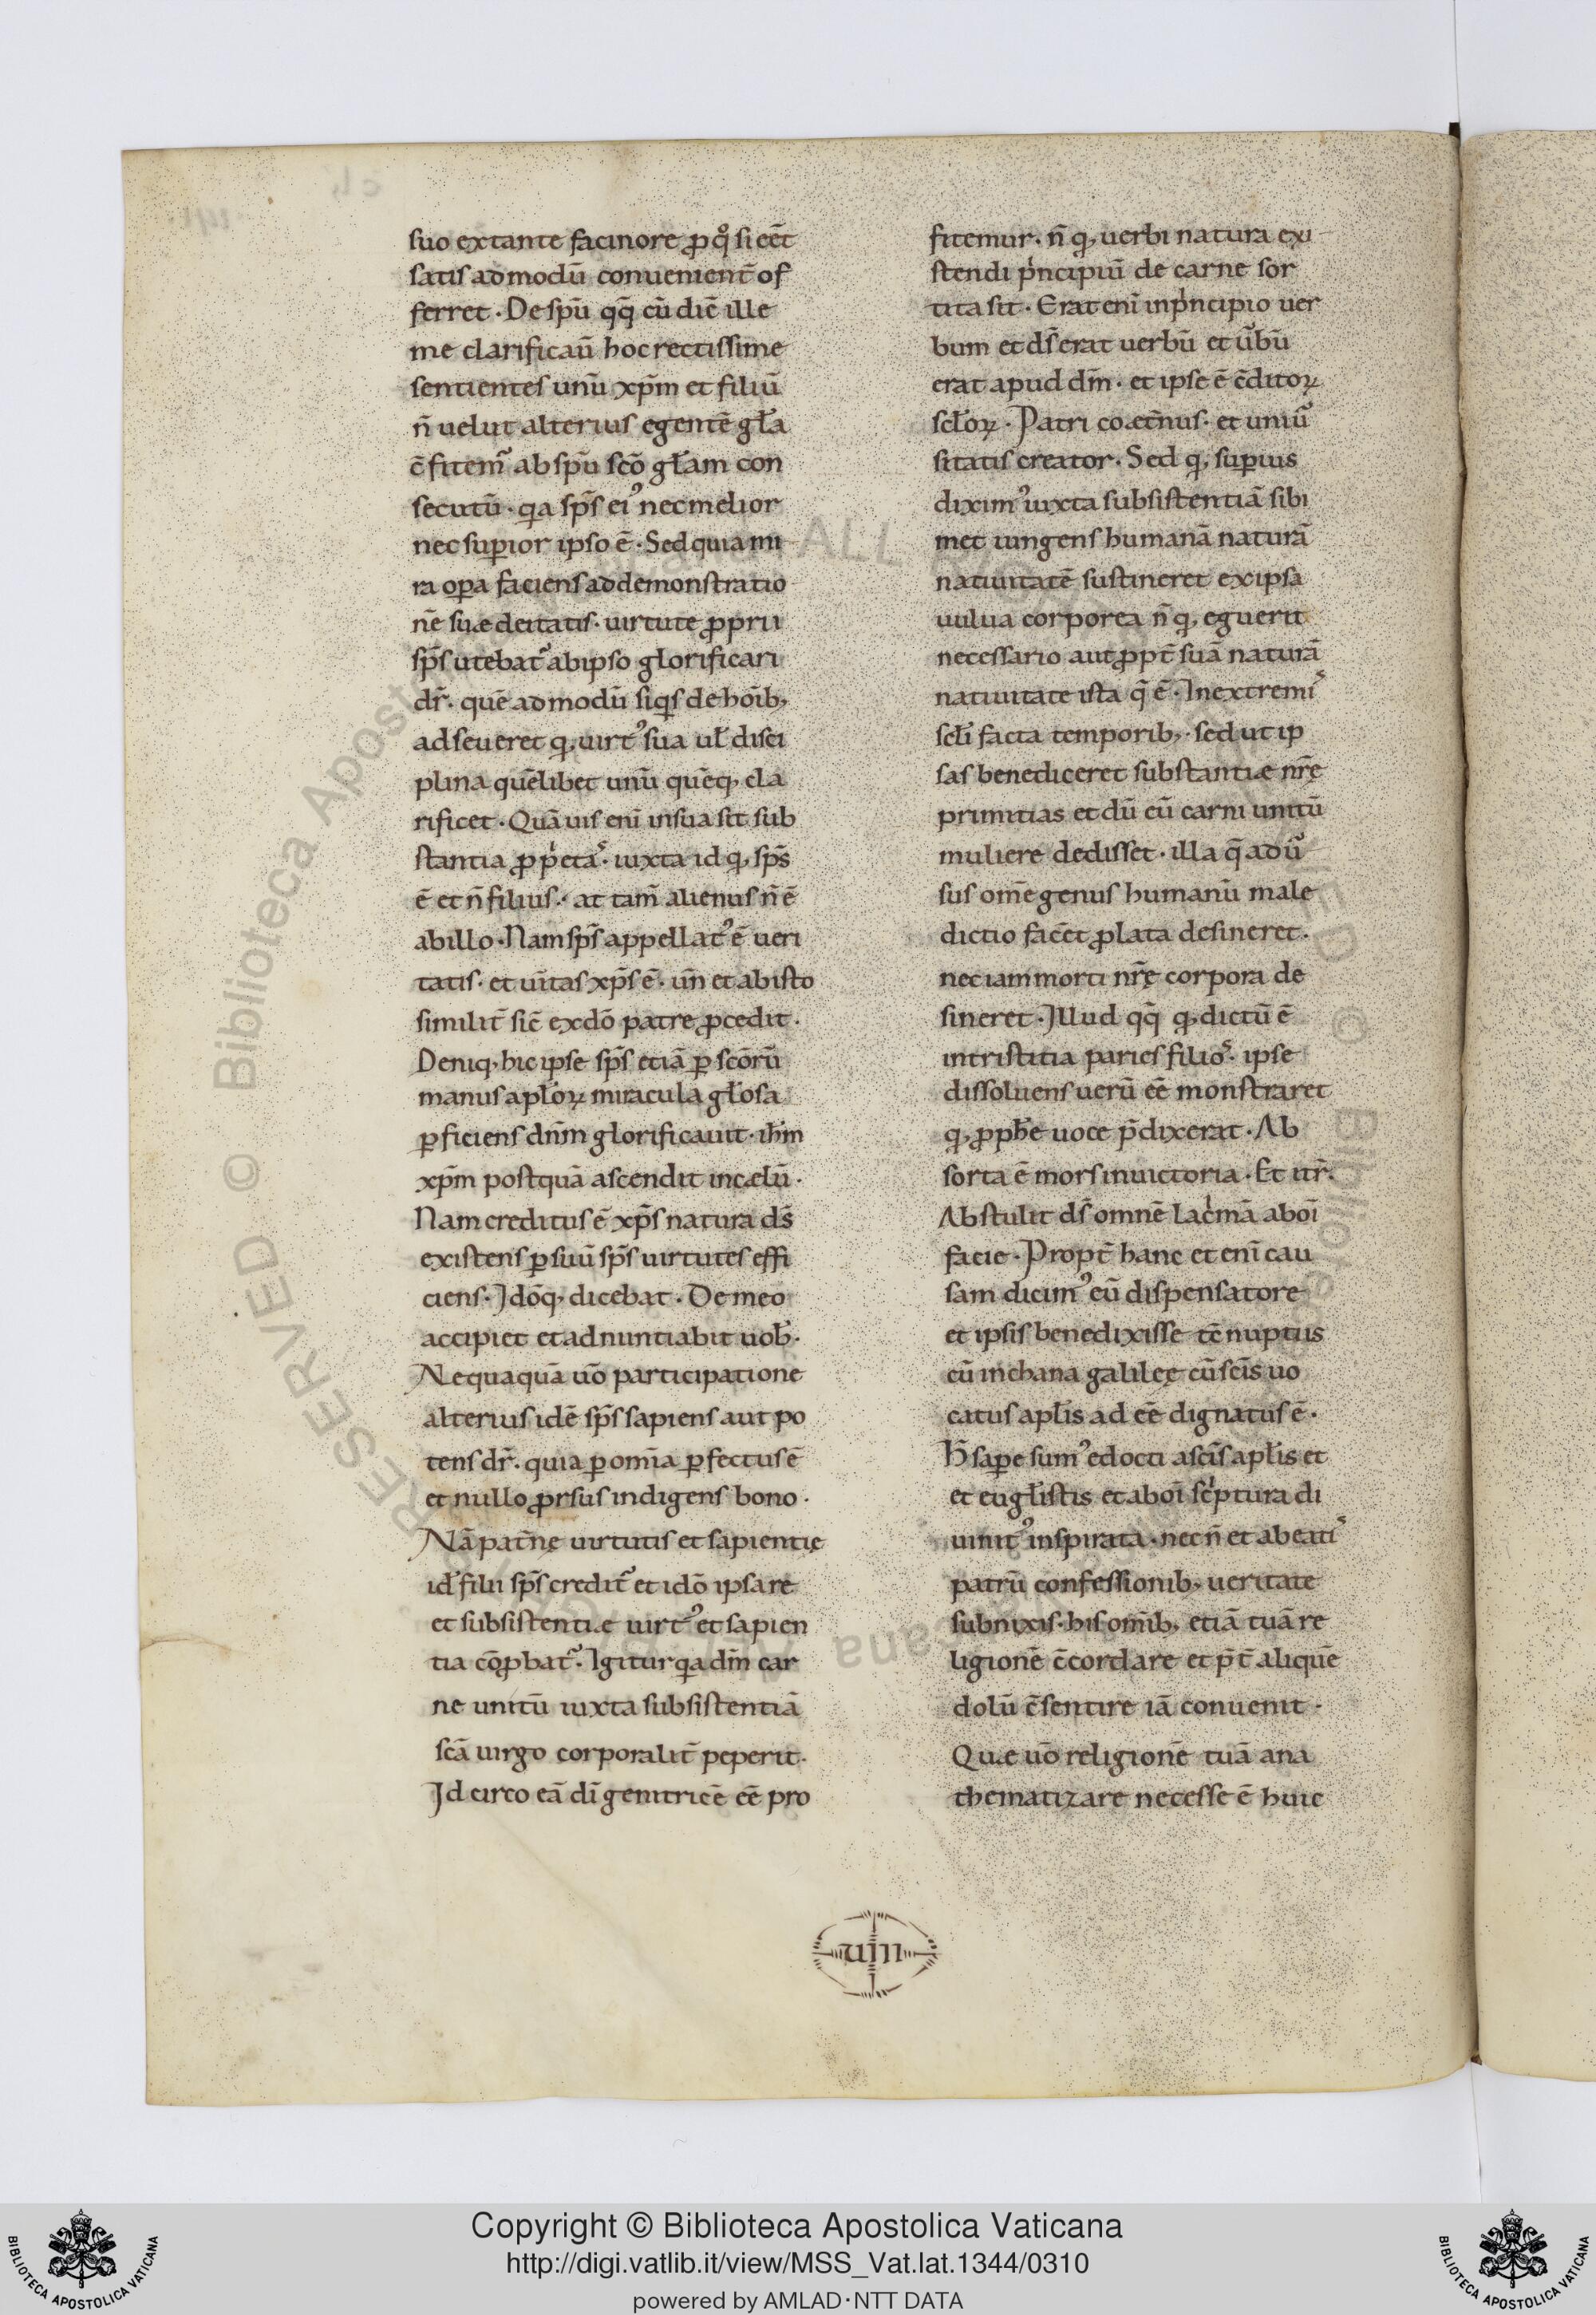 suo extante facinore ꝓ qͦ si eēt
satis admodū conuenient̄ of
ferret · De spū qq̄ cū dic̄ ille
me clarificaū hoc rectissime
sentientes unū xp̄m et filiū
n̄ uelut alterius egentē gl̄a
c̄fitem᷒ ab spū scō gl̄am con
secutū · qa sp̄s ei᷒ nec melior
nec suꝑior ipso ē · Sed quia mi
ra oꝑa faciens ad demonstratio
nē suæ deitatis · uirtute ꝓprii
sp̄s utebat᷒ ab ipso glorificari
dr̄ · quē admodū siqs de hōib;
adseueret q; uirt᷒ sua ul̄ disci
plina quēlibet unū quēq; cla
rificet · Quā uis enī in sua sit sub
stantia ꝓp̍etas · iuxta id q; sp̄s
ē et n̄ filius · at tam̄ alienus n̄ ē
ab illo · Nam sp̄s appellat᷒ ē ueri
tatis · et ūitas xp̄s ē · un̄ et ab isto
similit̄ sic̄ ex dō patre ꝓcedit ·
Deniq; hic ipse sp̄s etiā ꝑ scōrū
manus apl̄oꝝ miracula gl̄osa
ꝑficiens dn̄m glorificauit · ih̄m
xp̄m postquā ascendit in cælū ·
Nam creditus ē xp̄s natura ds̄
existens ꝑ suū sp̄s uirtutes effi
ciens · Idōq; dicebat · De meo
accipiet et adnuntiabit uob̄ ·
Nequaquā uō participatione
alterius idē sp̄s sapiens aut po
tens dr̄ · quia ꝑ om̄ia ꝑfectus ē
et nullo ꝓrsus indigens bono ·
Nā pat̄ne uirtutis et sapientię
id᷒ filii sp̄s credit᷒ et idō ipsa re
et subsistentiæ uirt᷒ et sapien
tia cōꝓbat᷒ · Igitur qa dm̄ car
ne unitū iuxta subsistentiā
scā uirgo corporalit̄ peperit ·
Id circo eā dī genitricē eē pro
fitemur · n̄ q; uerbi natura exi
stendi p̍ncipiū de carne sor
tita sit · Erat enī in p̍ncipio uer
bum et ds̄ erat uerbū et ūbū
erat apud dm̄ · et ipse ē c̄ditoꝝ
scl̄oꝝ · Patri coæt̄nus · et uniū
sitatis creator · Sed q; suꝑius
dixim᷒ iuxta subsistentiā sibi
met iungens humanā naturā
natiuitatē sustineret ex ipsa
uulua corporea n̄ q; eguerit
necessario aut ꝓpt̄ suā naturā
natiuitate ista q̄ ē · In extremis
scl̄i facta temporib; · sed ut ip
sas benediceret substantiæ nr̄ę
primitias et dū eū carni unitū
muliere dedisset · illa q̄ adū
sus om̄e genus humanū male
dictio fac̄et ꝓlata desineret ·
nec iam morti nr̄ę corpora de
sineret · Illud qq̄ q; dictū ē
in tristitia paries filios · ipse
dissoluens uerū eē monstraret
q; ꝓph̄e uoce p̄dixerat · Ab
sorta ē mors in uictoria · Et itr̄ ·
Abstulit ds̄ omnē lac̍mā ab oī
facie · Propt̄ hanc et enī cau
sam dicim᷒ eū dispensatore
et ipsis benedixisse cē nuptiis
cū in chana galileę cū scīs uo
catus apl̄is ad eē dignatus ē ·
H̄ saꝑe sum᷒ edocti a scīs apl̄is et
et eugl̄istis et ab oī sc̍ptura di
uinit᷒ inspirata · nec n̄ et a beatis
patrū confessionib; ueritate
subnixis · his om̄ib; etiā tuā re
ligionē c̄cordare et p̄t̄ aliquē
dolū c̄sentire iā conuenit ·
Quæ uō religionē tuā ana
thematizare necesse ē huic
uiiii
Copyright © Biblioteca Apostolica Vaticana
http://digi.vatlib.it/view/MSS_Vat.lat.1344/0310
powered by AMLAD·NTT DATA